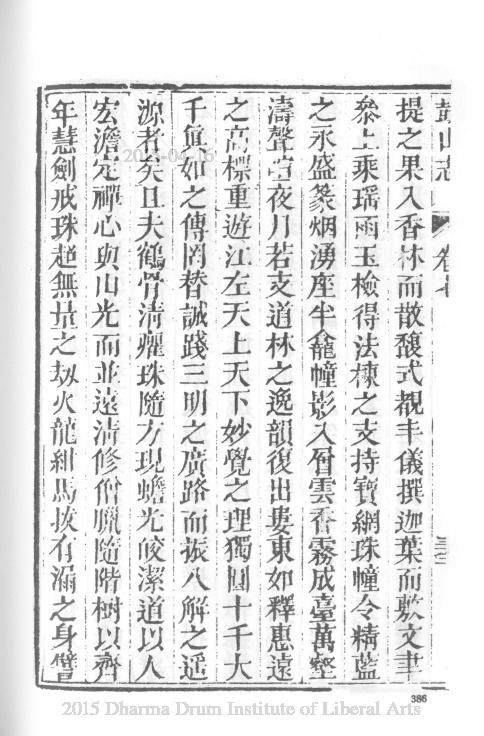 鼓山志 卷七
提之果入香林而散馥式覩丰儀撰迦葉而敷文聿
叅上乘瑶雨玉檢得法棟之支持寶網珠幢令精藍
之永盛篆烟湧座半龕幢影入層雲香霧成臺萬壑
濤聲喧夜月若支道林之逸韻復出婁東如釋惠遠
之高標重遊江左天上天下妙覺之理獨圓十千大
千眞如之傳罔替誠踐三明之廣路而振八解之遥
源者矣且夫鶴骨清癯珠隨方現蟾光皎潔道以人
宏澹定禪心與山光而並遠清修僧臘隨階樹以齊
年慧劍戒珠超無量之刼火龍紺馬拔有漏之身譬
2015-04-16
386
2015 Dharma Drum Institute of Liberal Arts